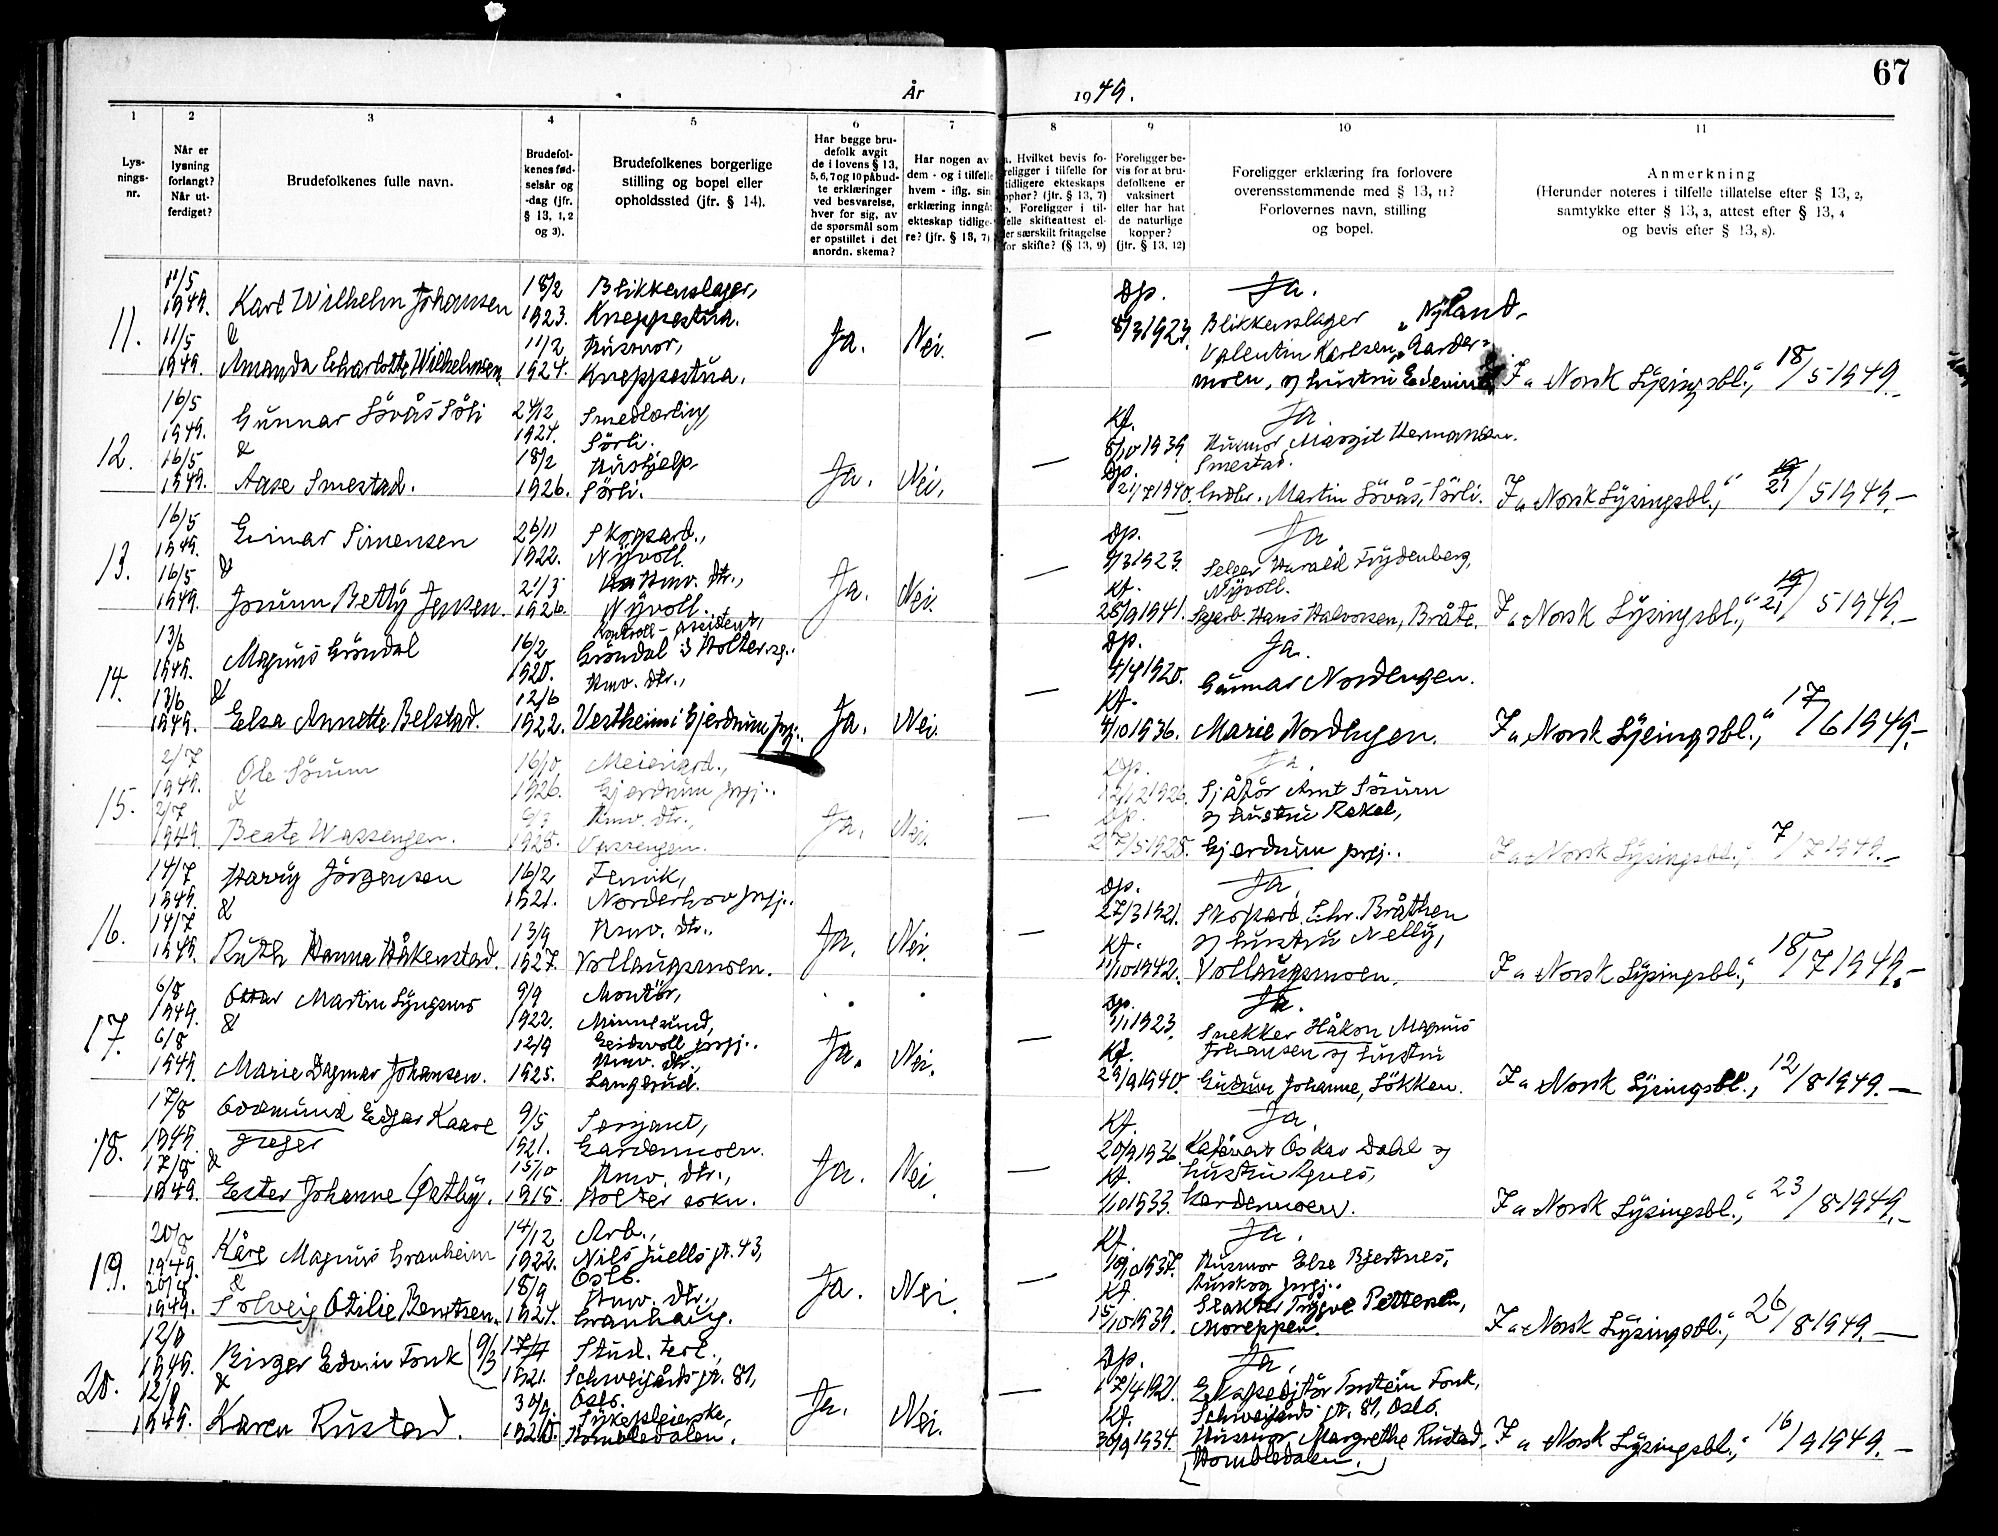 67
År 1949.
1 2 3 4 5 6 7 8 9 10 11
Lys-
nings-
nr.
Når er
lysning
forlangt?
Når ut-
ferdiget?
Brudefolkenes fulle navn.
Brudefol-
kenes fød-
selsår og
-dag (jfr.
§ 13, 1, 2
og 3).
Brudefolkenes borgerlige
stilling og bopel eller
opholdssted (jfr. § 14).
Har begge bru-
defolk avgit
de i lovens § 13,
5, 6, 7 og 10 påbud-
te erklæringer
ved besvarelse,
hver for sig, av
de spørsmål som
er opstillet i det
anordn. skema?
Har nogen av
dem - og i tilfelle
hvem - iflg. sin
erklæring inngåt
ekteskap tidlige-
re? (jfr. § 13, 7)
a. Hvilket bevis fo-
religger i tilfelle for
tidligere ekteskaps
ophør? (jfr. § 13, 7)
b. Foreligger i til-
felle skifteattest el-
ler særskilt fritagelse
for skifte? (§ 13, 9)
Foreligger be-
vis for at bru-
defolkene er
vaksinert
eller har hat
de naturlige
kopper?
(jfr. § 13, 12)
Foreligger erklæring fra forlovere
overensstemmende med § 13, 11?
Forlovernes navn, stilling
og bopel.
Anmerkning
(Herunder noteres i tilfelle tillatelse efter § 13, 2,
samtykke efter § 13, 3, attest efter § 13, 4
og bevis efter § 13, 8).
11.
11/5
1949.
11/5
1949.
Karl Wilhelm Johansen
&
Amanda Charlotte Wilhelmsen.
18/2
1923.
11/2
1924.
Blikkenslager,
Kneppestua.
Husmor,
Kneppestua.
Ja. Nei. —
Dp.
8/3 1923.
Ja.
Blikkenslager „Nyland“
Valentin Karlsen, Garder-
moen, og hustru
I „Norsk Lysingsbl.“, 18/5 1949.-
12.
16/5
1949.
16/5
1949.
Gunnar Sövås Söli
&
Aase Smestad.
24/12
1924.
18/2
1926.
Smedlærling,
Sörli.
Hushjelp,
Sörli.
Ja. Nei. —
Kf.
8/10 1939.
Dp.
21/7 1940.
Ja.
Husmor Margit Hermansen.
Smestad.
Martin Sövås, Sörli.
I „Norsk Lysingsbl.“, 21/5 1949.-
13.
16/5
1949.
16/5
1949.
Einar Simensen
&
Jorunn Betty Jensen.
26/11
1922.
21/3
1926.
Skogsarb.,
Nyvoll.
Hmv. dtr.,
Nyvoll.
Ja. Nei. —
Dp.
4/3 1923.
Kf.
28/9 1941.
Ja
Selger Harald Frydenberg,
Nyvoll.
Hans Halvorsen, Bråte.
I „Norsk Lysingsbl.“, 21/5 1949.-
14.
13/6
1949.
13/6
1949.
Magnus Gröndal
&
Elsa Annette Belstad.
16/2
1920.
12/6
1922.
Kontroll-assistent,
Gröndal i Holter sg..
Hmv. dtr.,
Vestheim i Gjerdrum prgj..
Ja. Nei. —
Dp.
4/4 1920.
Kf.
4/10 1936.
Ja.
Gunnar Nordengen.
Marie Nordhgen.
I „Norsk Lysingsbl.“, 17/6 1949.-
15.
2/7
1949.
2/7
1949.
Ole Sörum
&
Beate Wassengen.
1926.
1925.
Meieriarb.,
Gjerdrum prgj..
Hmv. dtr.,
Vassengen.
Ja. Nei. —
Dp.
12/12 1926.
Dp.
27/5 1925.
Ja.
Sjåför Arnt Sörum
og hustru Rakel,
Gjerdrum prgj..
I „Norsk Lysingsbl.“, 7/7 1949.-
16.
14/7
1949.
14/7
1949.
Harry Jörgensen
&
Ruth Hanna Håkenstad.
16/2
1921.
13/9
1927.
Fenrik,
Norderhov prgj..
Hmv. dtr.,
Vollaugsmoen.
Ja. Nei. —
Dp.
27/3 1921.
Kf.
11/10 1942.
Ja.
Skogsarb. Chr. Bråthen
og hustru Nelly,
Vollaugsmoen.
I „Norsk Lysingsbl.“, 18/7 1949.-
17.
6/8
1949.
6/8
1949.
Ottar Martin Lyngsnes
&
Marie Dagmar Johansen.
9/9
1922.
12/9
1925.
Montör,
Minnesund,
Eidsvoll prgj..
Hmv. dtr.,
Langerud.
Ja. Nei. —
Dp.
1/1 1923.
Kf.
29/9 1940.
Ja.
Snekker Håkon Magnus
Johansen og hustru
Gudrun Johanne, Lökken.
I „Norsk Lysingsbl., 12/8 1949.-
18.
17/8
1949.
17/8
1949.
Oddmund Edgar Kaare
Jreger
&
Ester Johanne Østby.
9/5
1921.
15/10
1918.
Sersjant,
Gardermoen.
Hmv. dtr.,
Holter sokn.
Ja. Nei. —
Kf.
20/9 1936.
Kf.
1/10 1933.
Ja.
Oskar Dahl og
hustru Agnes,
Gardermoen.
I „Norsk Lysingsbl.“, 23/8 1949.-
19.
20/8
1949.
20/8
1949.
Kåre Magnus Granheim
&
Solveig Otilie Berntsen.
14/12
1922.
18/9
1924.
Arb.,
Nils Juells gt. 43,
Oslo.
Hmv. dtr.,
Granhaug.
Ja. Nei. —
Kf.
10/10 1937.
Kf.
15/10 1939.
Ja.
Husmor Else Bjertnes,
Hurdal prgj..
Slakter Trygve Pettersen,
Moreppen.
I „Norsk Lysingsbl.“, 26/8 1949.-
20.
12/9
1949.
12/9
1949.
Birger Edvin Fonk (9/3
&
Karen Rustad.
17/4
1921.
30/9
1920.
Stud. teol.,
Schweigårds gt. 81,
Oslo.
Sykepleierske,
Hombledalen.
Ja. Nei. —
Dp.
17/4 1921.
Kf.
30/9 1934.
Ja.
Ekspeditör Torstein Fonk,
Schweigårds gt. 81, Oslo.
Husmor Margrethe Rustad.
(Hombledalen.)
I „Norsk Lysingsbl.“, 16/9 1949.-